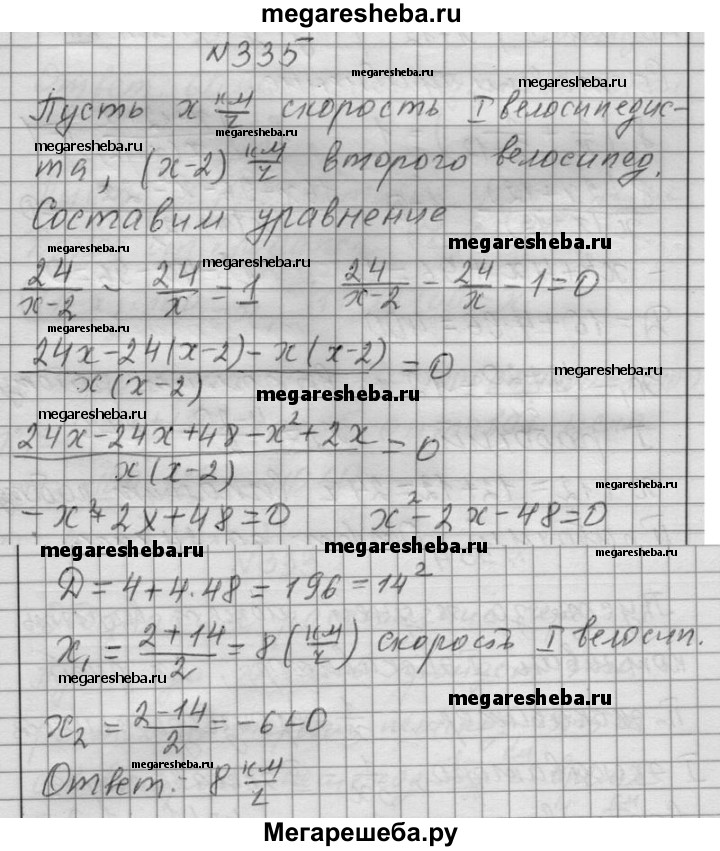 megaresheba.ru
N335
megaresheba.ru
megaresheba.ru
Пусть x км/ч скорость I велосипедис-
megaresheba.ru
megaresheba.ru
та, (x-2) км/ч второго велосипед.
Составим уравнение
megaresheba.ru
megaresheba.ru
megaresheba.ru
24/(x-2) - 24/x = 1 24/(x-2) - 24/x - 1 = 0
megaresheba.ru
(24x-24(x-2)-x(x-2))/(x(x-2)) = 0
megaresheba.ru
megaresheba.ru
megaresheba.ru
(24x-24x+48-x²+2x)/(x(x-2)) = 0
megaresheba.ru
-x²+2x+48=0 x²-2x-48=0
megaresheba.ru
megaresheba.ru
megaresheba.ru
Д=4+4·48=196=14²
x₁ = (2+14)/2 = 8 (км/ч) скорость I велосип.
megaresheba.ru
megaresheba.ru
x₂ = (2-14)/2 = -6<0
megaresheba.ru
Ответ: 8 км/ч
megaresheba.ru
Мегарешеба.ру